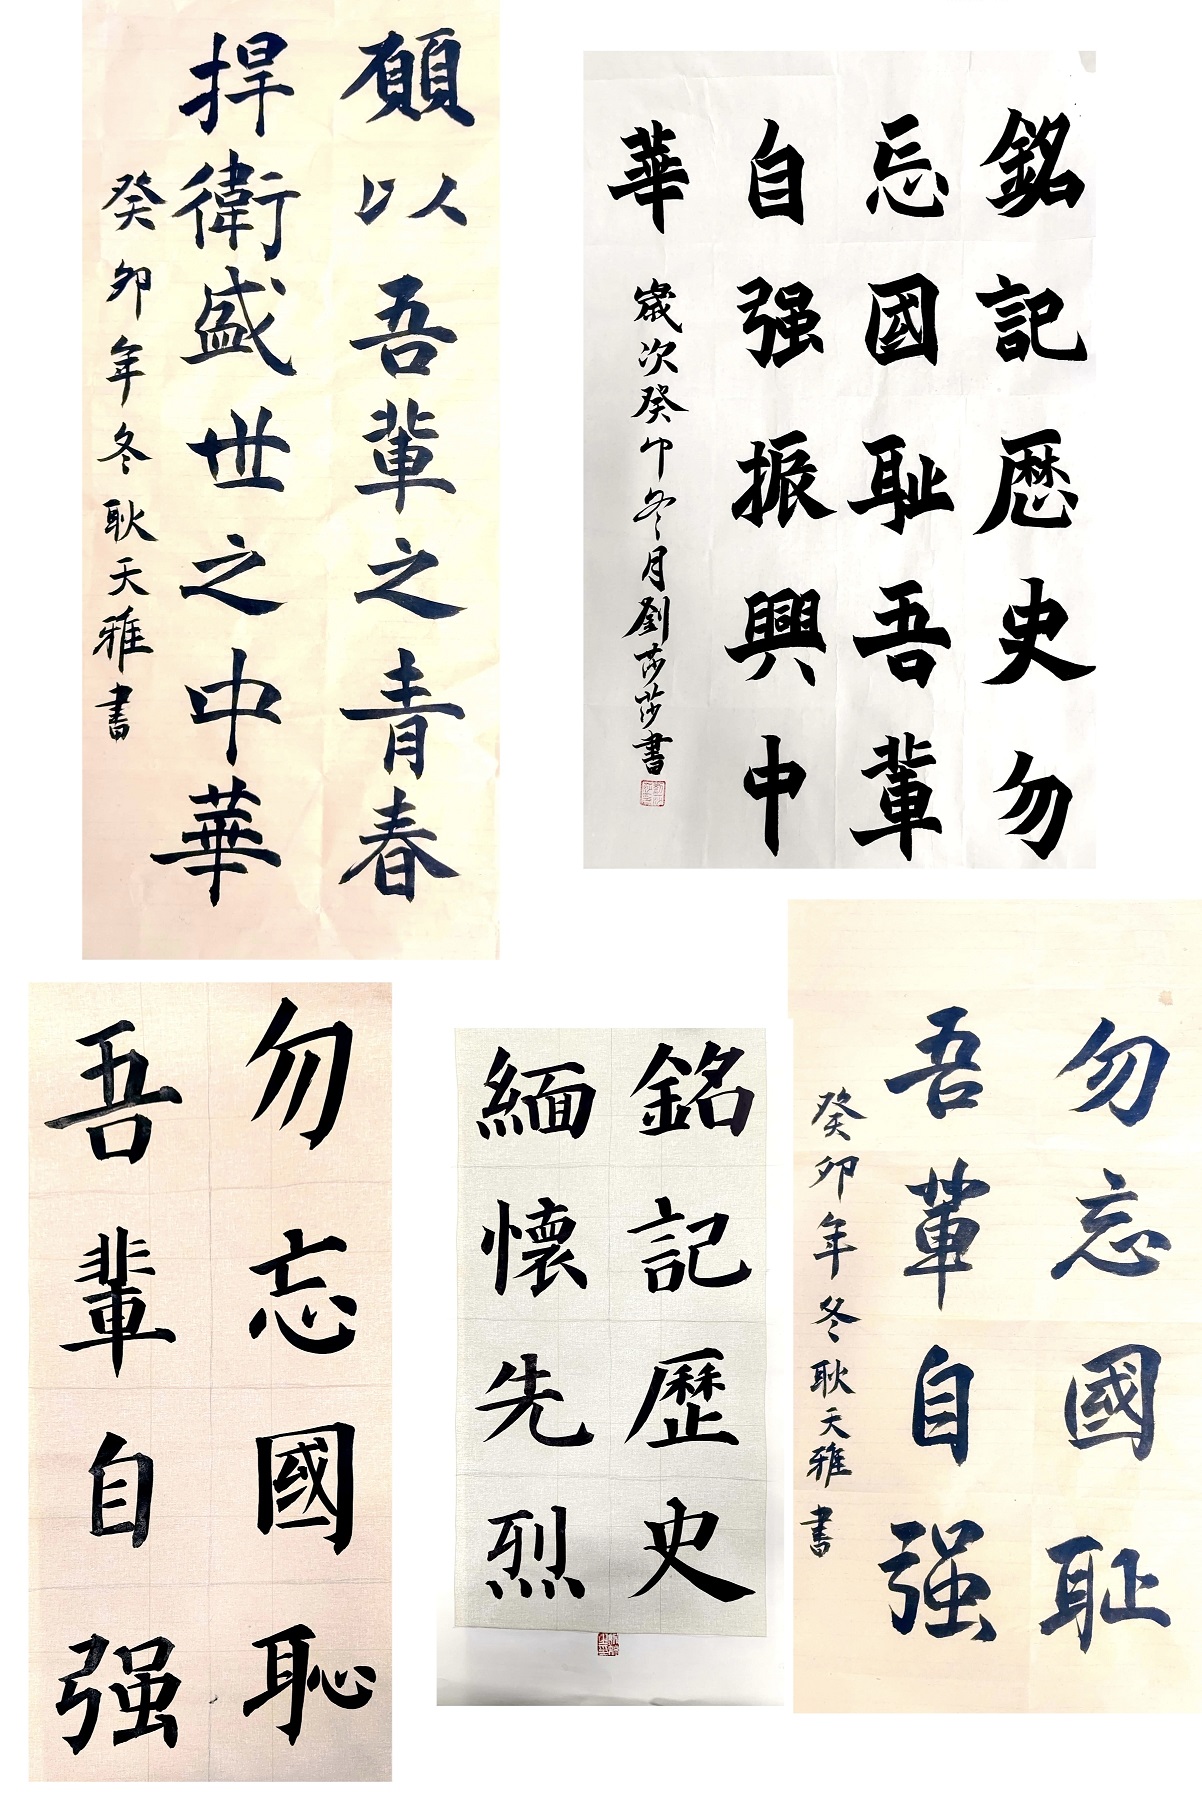 願以吾輩之青春
捍衛盛世之中華
癸卯年冬耿天雅書
銘記歷史勿
忘國耻吾輩
自强振興中
華
歲次癸卯冬月劉莎莎書
勿忘國恥
吾輩自强
銘記歷史
緬懷先烈
勿忘國耻
吾輩自强
癸卯年冬耿天雅書